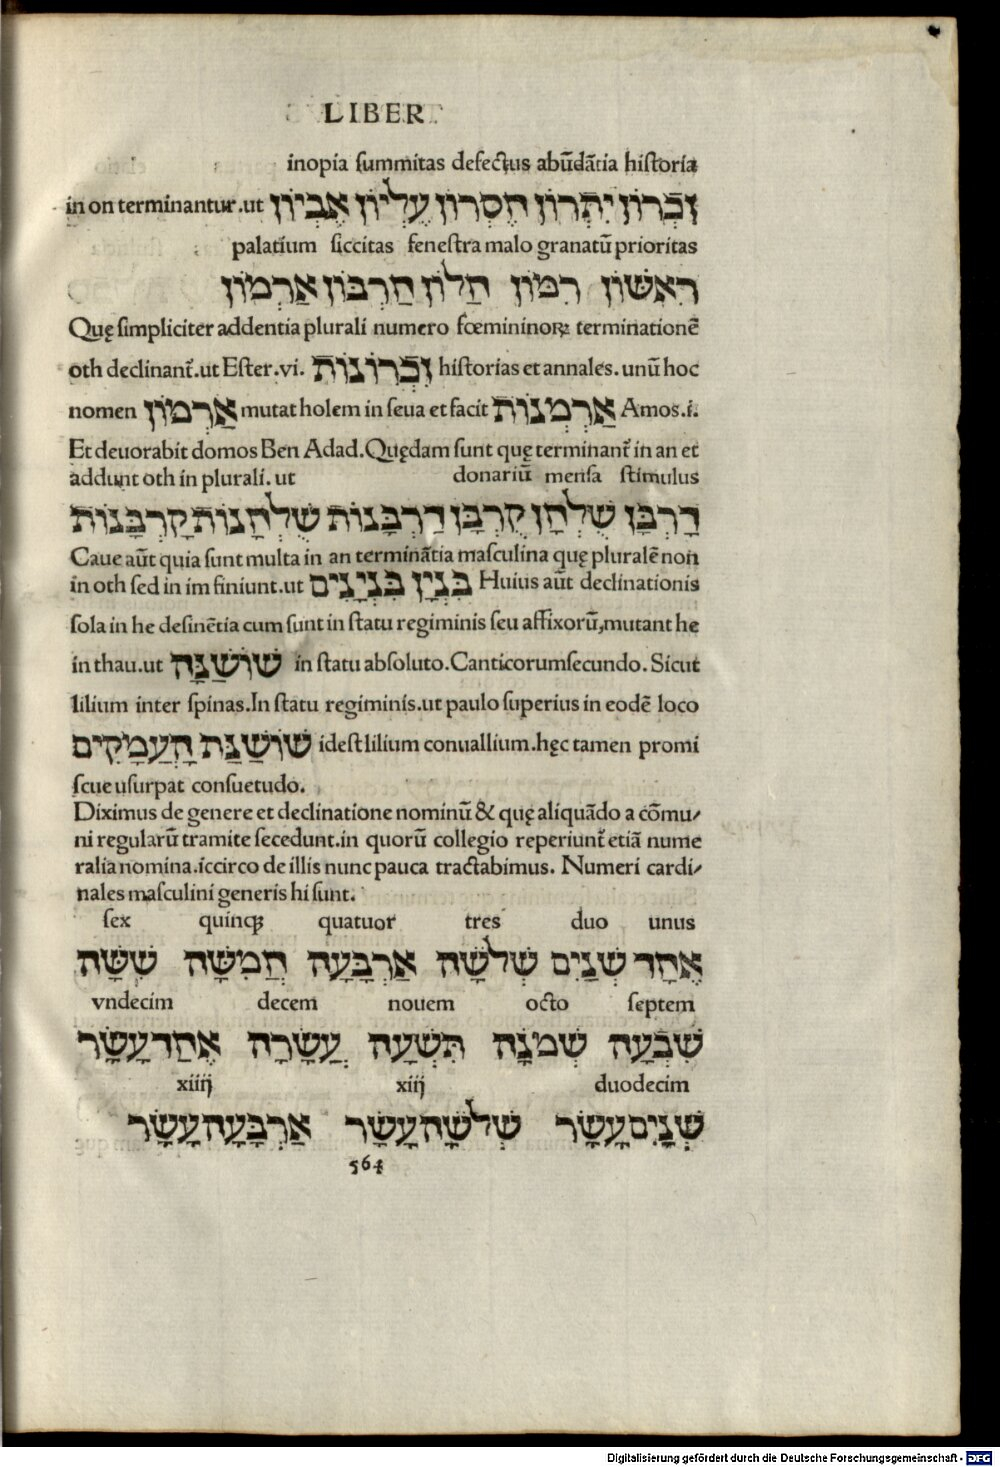 LIBER
inopia summitas defectus abūdātia historia
in on terminantur.ut זִכְּרוֹן יִתְרוֹן חֶסְרוֹן עֶלְיוֹן אֶבְיוֹן
palatium siccitas fenestra malo granatū prioritas
רִאשׁוֹן רִמּוֹן חַלּוֹן חַרְבּוֹן אַרְמוֹן
Quę simpliciter addentia plurali numero fœmininoꝝ terminationē
oth declinant̄.ut Ester.vi. זִכְּרוֹנוֹת historias et annales.unū hoc
nomen אַרְמוֹן mutat holem in seua et facit אַרְמְנוֹת Amos.i.
Et deuorabit domos Ben Adad.Quędam sunt quę terminant̄ in an et
addunt oth in plurali.ut donariū mensa stimulus
דָרְבָן שֻׁלְחָן קֻרְבָּן דַרְבָּנוֹת שֻׁלְחָנוֹת קָרְבָּנוֹת
Caue aūt quia sunt multa in an terminātia masculina quę pluralē non
in oth sed in im finiunt.ut בִּנְיָן בִּנְיָנִים Huius aūt declinationis
sola in he desinētia cum sunt in statu regiminis seu affixorū,mutant he
in thau.ut שׁוֹשַׁנָּה in statu absoluto.Canticorum secundo. Sicut
lilium inter spinas.In statu regiminis.ut paulo superius in eodē loco
שׁוֹשַׁנַּת הָעֲמָקִים idest lilium conuallium.hęc tamen promi
scue usurpat consuetudo.
Diximus de genere et declinatione nominū & quę aliquādo a cōmu⸗
ni regularū tramite secedunt.in quorū collegio reperiunt̄ etiā nume
ralia nomina.iccirco de illis nunc pauca tractabimus. Numeri cardi⸗
nales masculini generis hi sunt.
sex quinqꝫ quatuor tres duo unus
אֶחָד שְׁנַיִם שְׁלֹשָׁה אַרְבָּעָה חֲמִשָּׁה שִׁשָּׁה
vndecim decem nouem octo septem
שִׁבְעָה שְׁמֹנָה תִּשְׁעָה עֲשָׂרָה אֶחַד עָשָׂר
xiiij xiij duodecim
שְׁנַיִם עָשָׂר שְׁלֹשָׁה עָשָׂר אַרְבָּעָה עָשָׂר
564
Digitalisierung gefördert durch die Deutsche Forschungsgemeinschaft - DFG